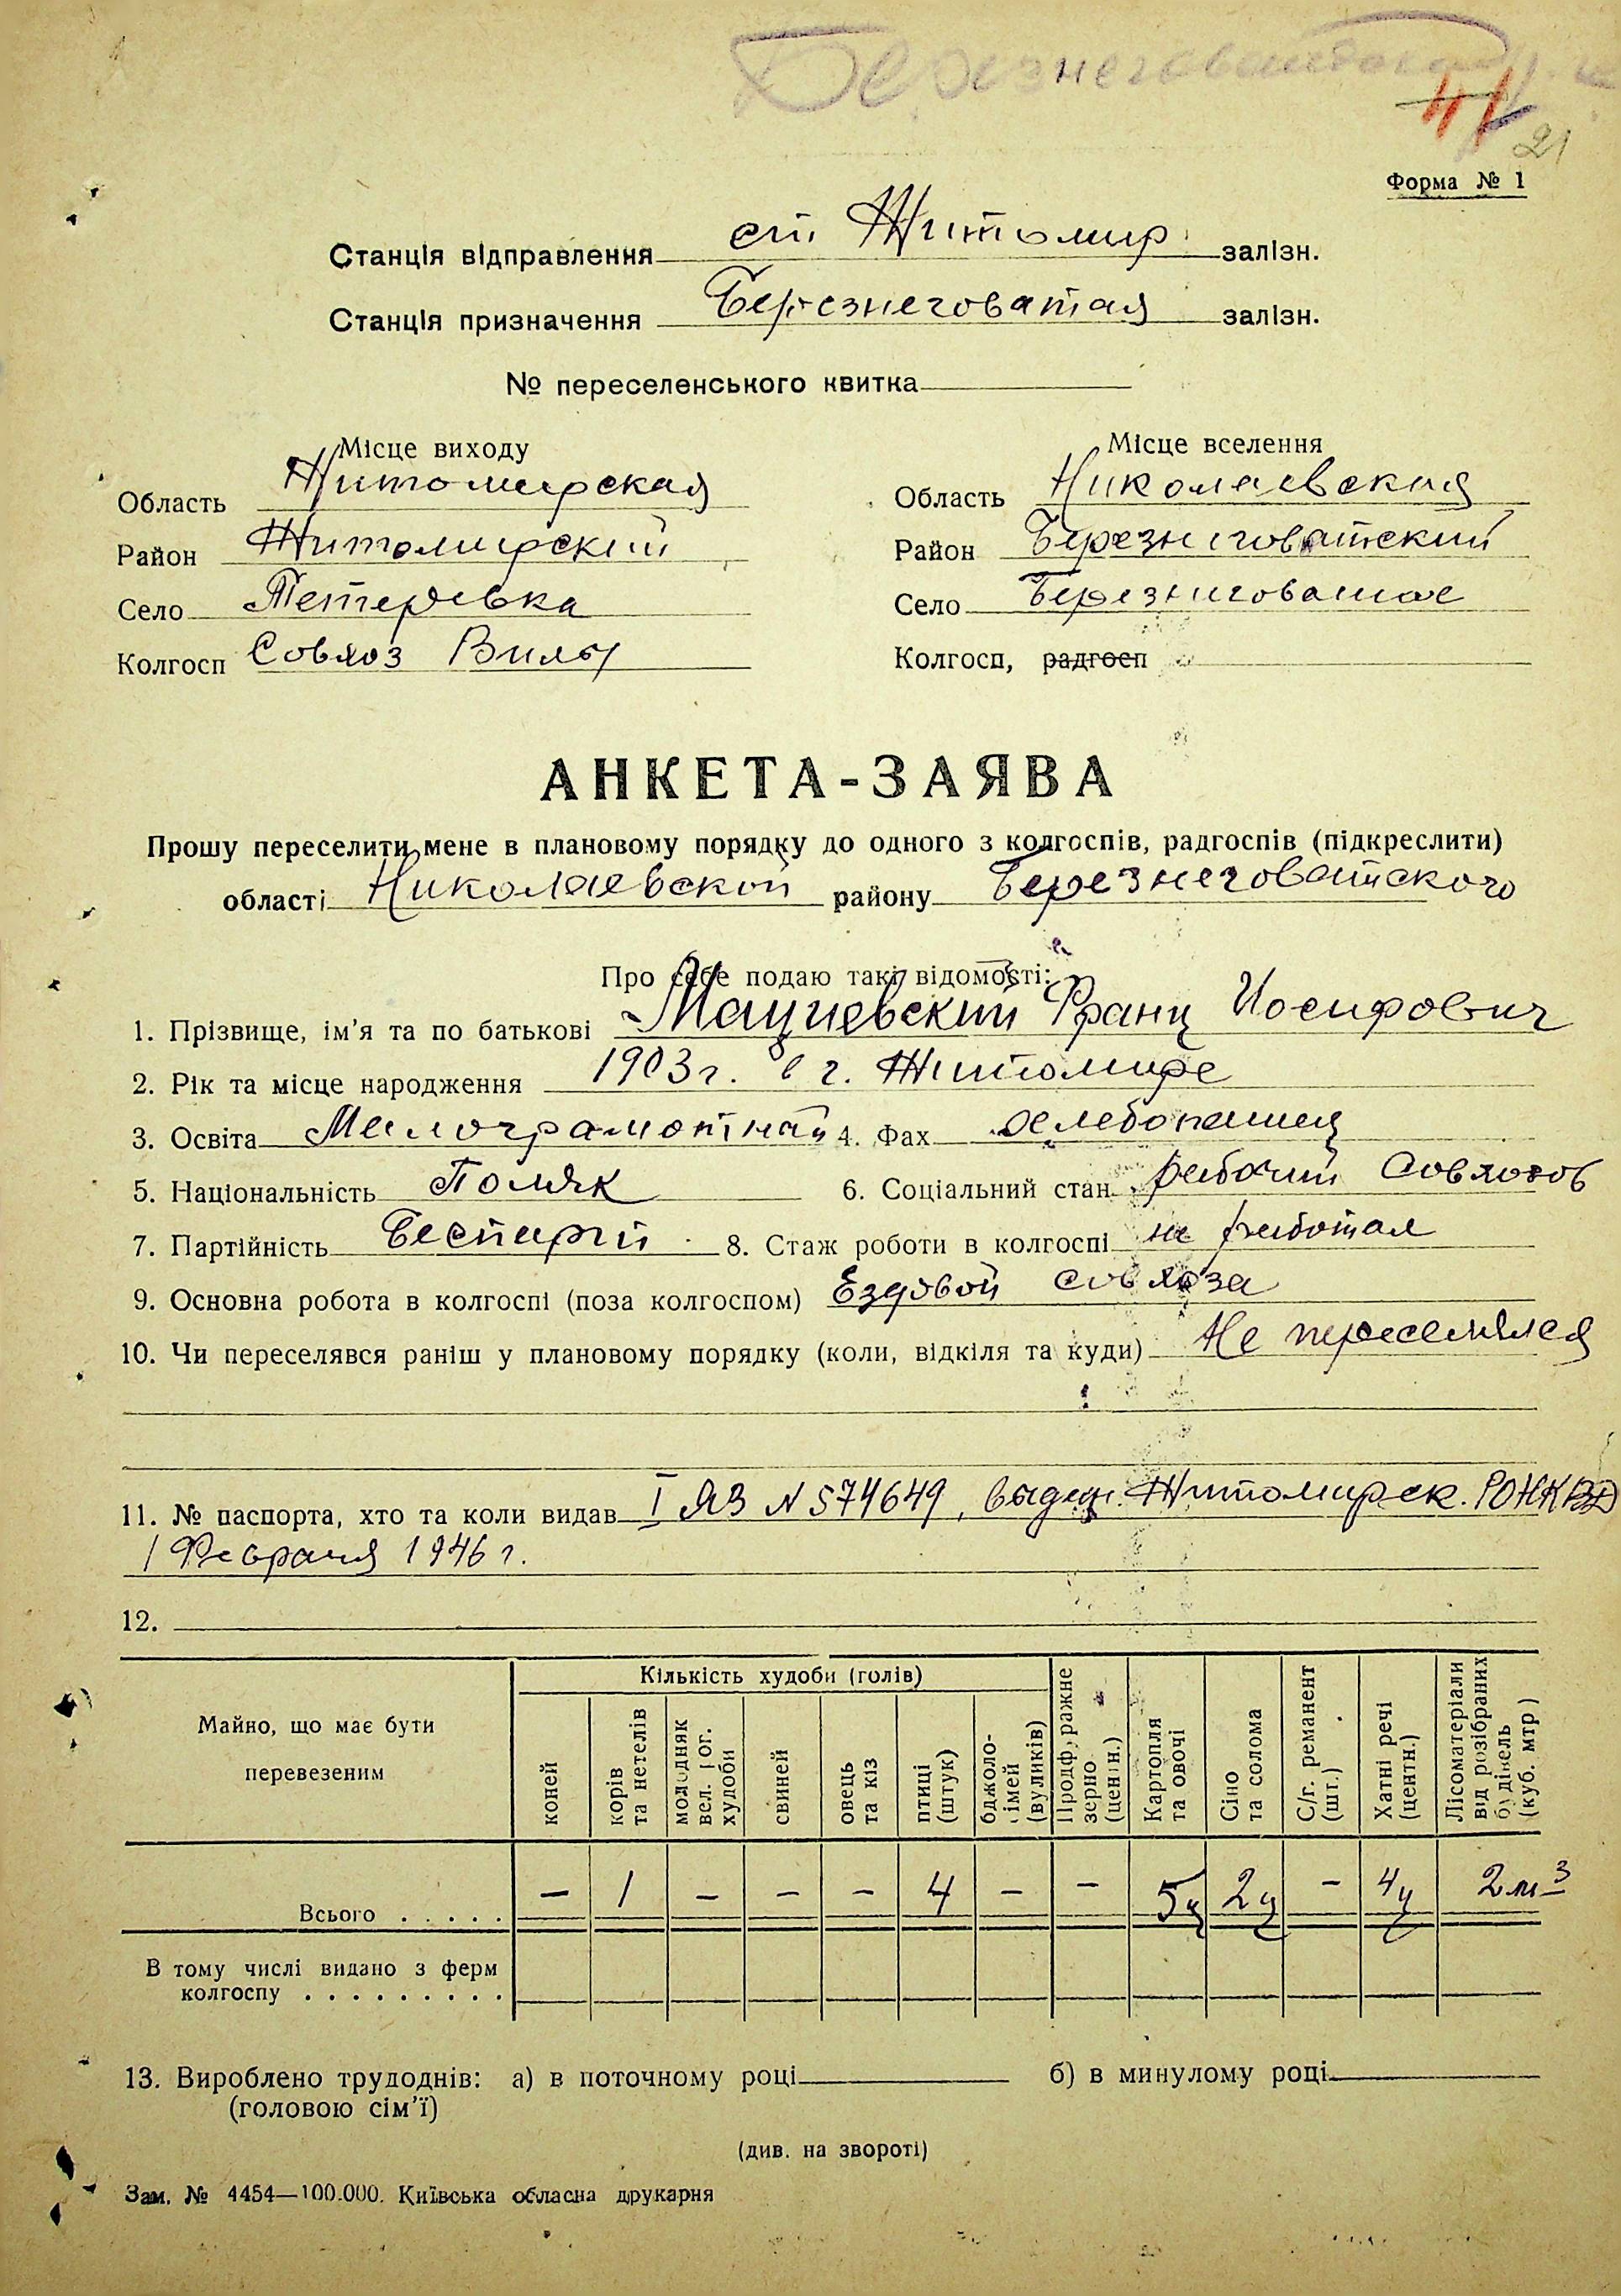 Березнеговатская
41
21
Форма № 1
Станція відправлення ст Житомир залізн.
Станція призначення Березнеговатая залізн.
№ переселенського квитка
Місце виходу
Область Житомирская
Район Житомирский
Село Тетеревка
Колгосп Совхоз Вилы
Місце вселення
Область Николаевская
Район Березниговатский
Село Березниговатое
Колгосп, радгосп
АНКЕТА-ЗАЯВА
Прошу переселити мене в плановому порядку до одного з колгоспів, радгоспів (підкреслити)
області Николаевской району Березнеговатского
Про себе подаю такі відомості:
1. Прізвище, ім'я та по батькові Мациевский Франц Иосифович
2. Рік та місце народження 1903г. в г. Житомире
3. Освіта Малограмотный 4. Фах хлебопашец
5. Національність Поляк 6. Соціальний стан рабочий Совхозов
7. Партійність Беспарт 8. Стаж роботи в колгоспі не работал
9. Основна робота в колгоспі (поза колгоспом) Ездовой совхоза
10. Чи переселявся раніш у плановому порядку (коли, відкіля та куди) Не переселялся
11. № паспорта, хто та коли видав I ЯЗ N 574649, выдан. Житомирск. РОНКВД
1 Февраля 1946 г.
12.
Майно, що має бути перевезеним
Кількість худоби (голів)
коней
корів та нетелів
молодняк вел. рог. худоби
свиней
овець та кіз
птиці (штук)
бджоло-сімей (вуликів)
Продфуражне зерно (центн.)
Картопля та овочі
Сіно та солома
С/г. реманент (шт.)
Хатні речі (центн.)
Лісоматеріали від розібраних будівель (куб. мтр)
Всього . . . . . – 1 – – – 4 – – 5ц 2ц – 4ц 2 м³
В тому числі видано з ферм
колгоспу . . . . . . . . .
13. Вироблено трудоднів: а) в поточному році б) в минулому році
(головою сім'ї)
(див. на звороті)
Зам. № 4454—100.000. Київська обласна друкарня